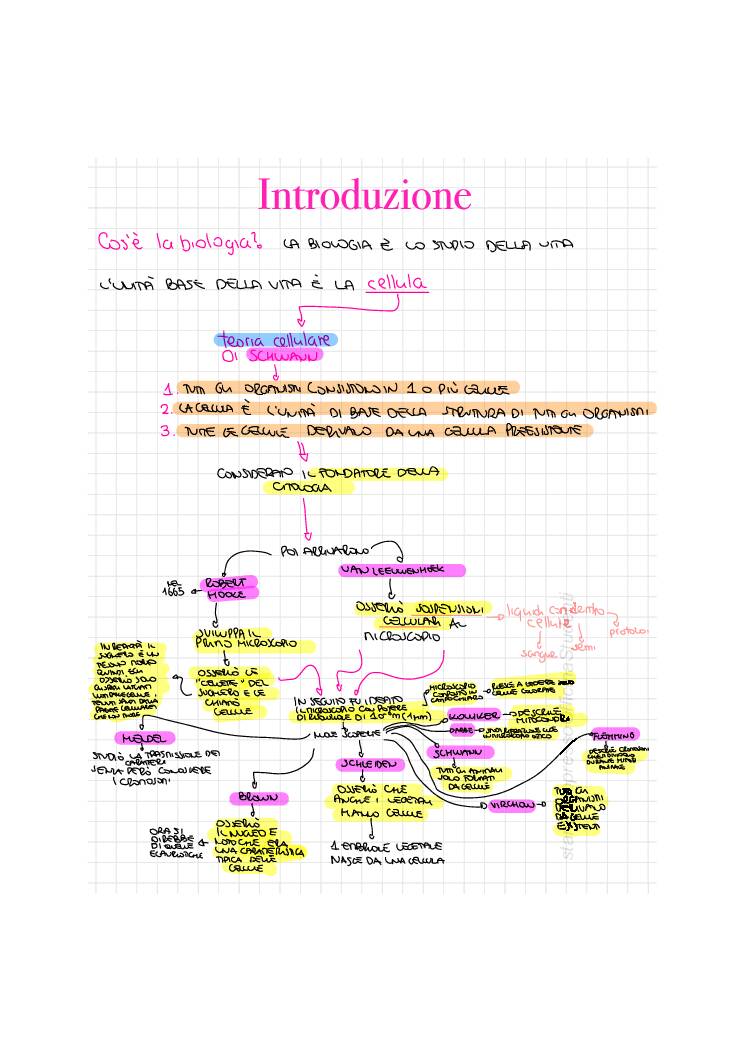 Introduzione
Cos'è la biologia? LA BIOLOGIA È LO STUDIO DELLA VITA
L'UNITÀ BASE DELLA VITA È LA cellula
teoria cellulare
DI SCHWANN
1. TUTTI GLI ORGANISMI CONSISTONO IN 1 O PIÙ CELLULE
2. LA CELLULA È L'UNITÀ DI BASE DELLA STRUTTURA DI TUTTI GLI ORGANISMI
3. TUTTE LE CELLULE DERIVANO DA UNA CELLULA PREESISTENTE
CONSIDERATO IL FONDATORE DELLA
CITOLOGIA
POI ARRIVARONO
ROBERT
HOOKE
NEL
1665
VAN LEEUWENHOEK
SVILUPPA IL
PRIMO MICROSCOPIO
OSSERVÒ SOSPENSIONI
CELLULARI AL
MICROSCOPIO
liquidi contenenti
cellule
sangue
semi
protozoi
OSSERVÒ LE
"CELLETTE" DEL
SUGHERO E LE
CHIAMÒ
CELLULE
IN REALTÀ IL
SUGHERO È UN
TESSUTO MORTO
QUINDI EGLI
OSSERVÒ SOLO
IN SEGUITO FU IDEATO
IL MICROSCOPIO CON POTERE
DI RISOLUZIONE DI 10⁻⁶m (1μm)
MICROSCOPIO
KOLLIKER
DESCRIVE
MITOCONDRI
NUOVE SCOPERTE
MENDEL
STUDIÒ LA TRASMISSIONE DEI
CARATTERI
SENZA PERÒ CONOSCERE
I CROMOSOMI
BROWN
OSSERVÒ
IL NUCLEO E
NOTÒ CHE ERA
UNA CARATTERISTICA
TIPICA DELLE
CELLULE
ORA SI
DIREBBE
DI QUELLE
EUCARIOTICHE
SCHLEIDEN
OSSERVÒ CHE
ANCHE I VEGETALI
HANNO CELLULE
1 EMBRIONE VEGETALE
NASCE DA UNA CELLULA
SCHWANN
TUTTI GLI ANIMALI
SONO FORMATI
DA CELLULE
VIRCHOW
TUTTI GLI
ORGANISMI
DERIVANO
DA CELLULE
ESISTENTI
FLEMMING
DESCRIVE CROMOSOMI
DURANTE MITOSI
ANIMALE